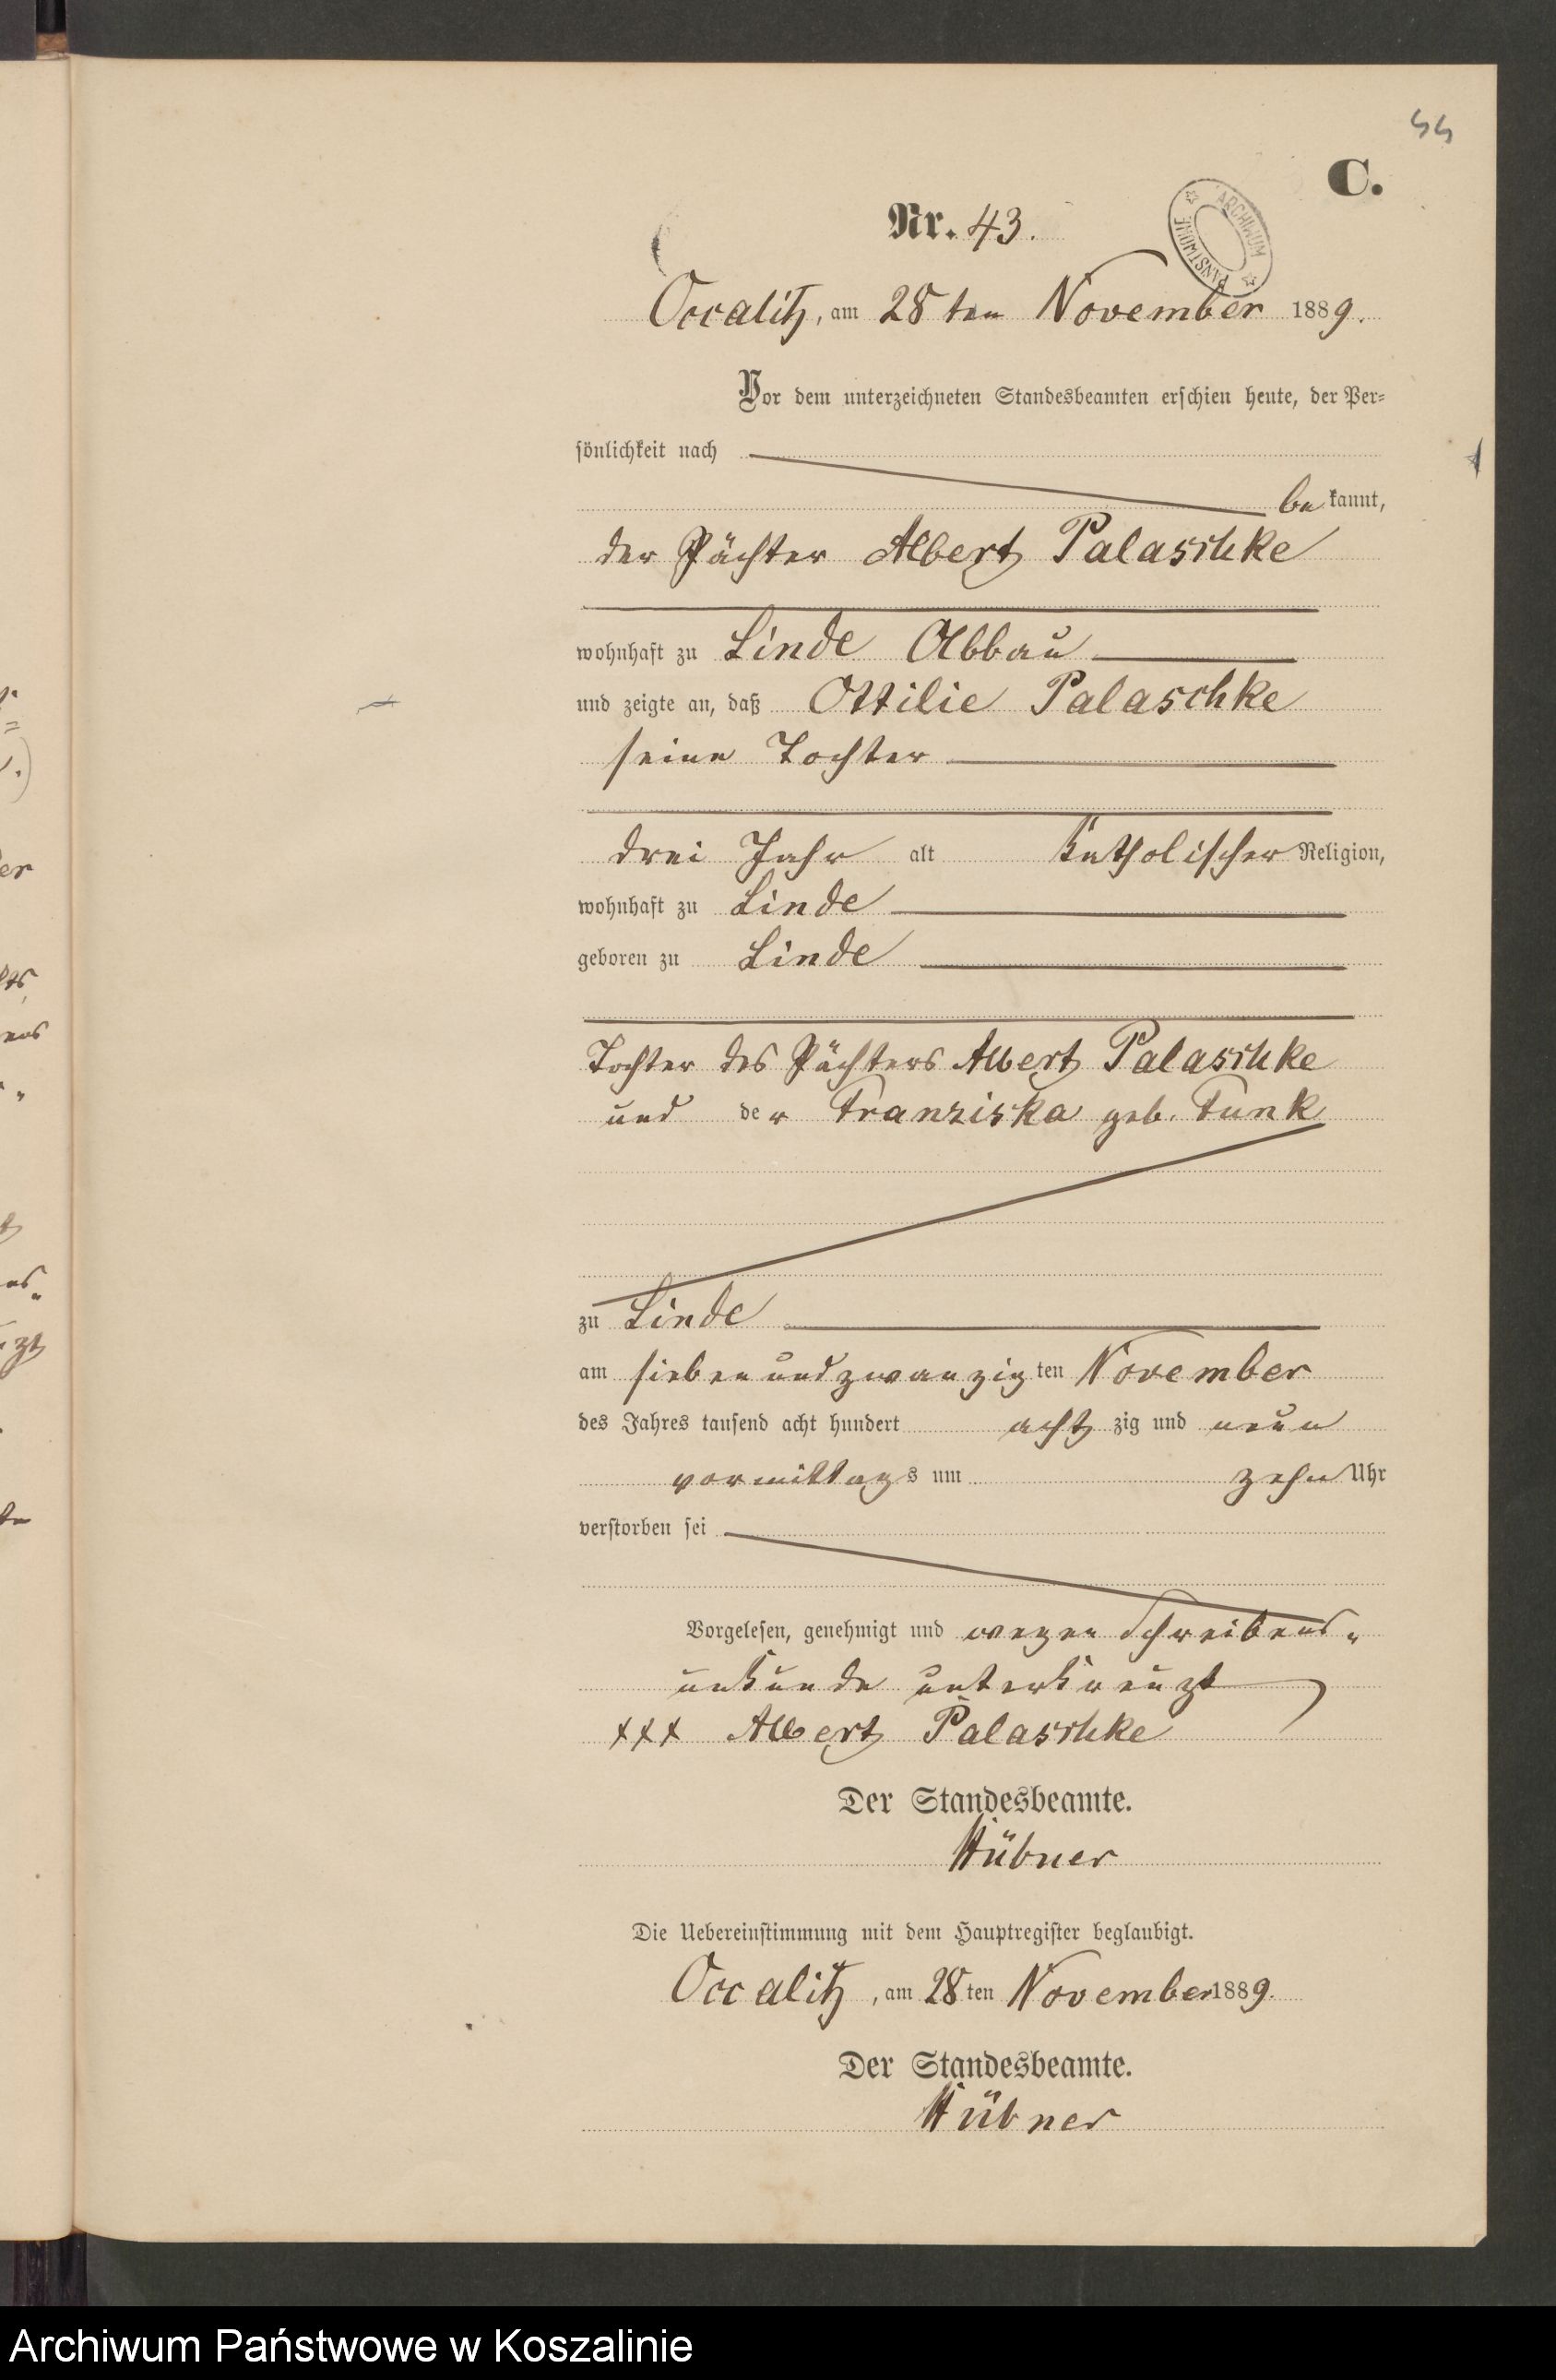 44
C.
Nr. 43.
ARCHIWUM PAŃSTWOWE
Occalitz, am 28ten November 1889.
Vor dem unterzeichneten Standesbeamten erschien heute, der Per-
sönlichkeit nach
bekannt,
der Pächter Albert Palaschke
wohnhaft zu Linde Abbau
und zeigte an, daß Ottilie Palaschke
seine Tochter
drei Jahr alt katholischer Religion,
wohnhaft zu Linde
geboren zu Linde
Tochter des Pächters Albert Palaschke
und der Franziska geb. Funk
zu Linde
am siebenundzwanzigten November
des Jahres tausend acht hundert achtzig und neun
vormittags um zehn Uhr
verstorben sei
Vorgelesen, genehmigt und wegen Schreibens-
unkunde unterkreuzt
xxx Albert Palaschke
Der Standesbeamte.
Hübner
Die Uebereinstimmung mit dem Hauptregister beglaubigt.
Occalitz, am 28ten November 1889.
Der Standesbeamte.
Hübner
Archiwum Państwowe w Koszalinie